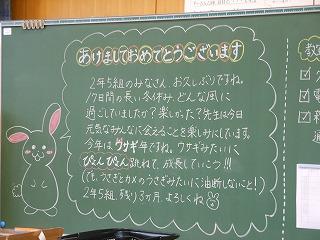 あけましておめでとうございます
2年5組のみなさん、お久しぶりですね。
17日間の長い冬休み、どんな風に
過ごしていましたか?楽しかった?先生は今日
元気なみんなに会えることを楽しみにしています。
今年はウサギ年ですね。ウサギみたいに
ぴょんぴょん跳ねて、成長していこう!!!
(でも、うさぎとカメのうさぎみたいに油断しないこと!)
2年5組、残り3ヶ月、よろしくね